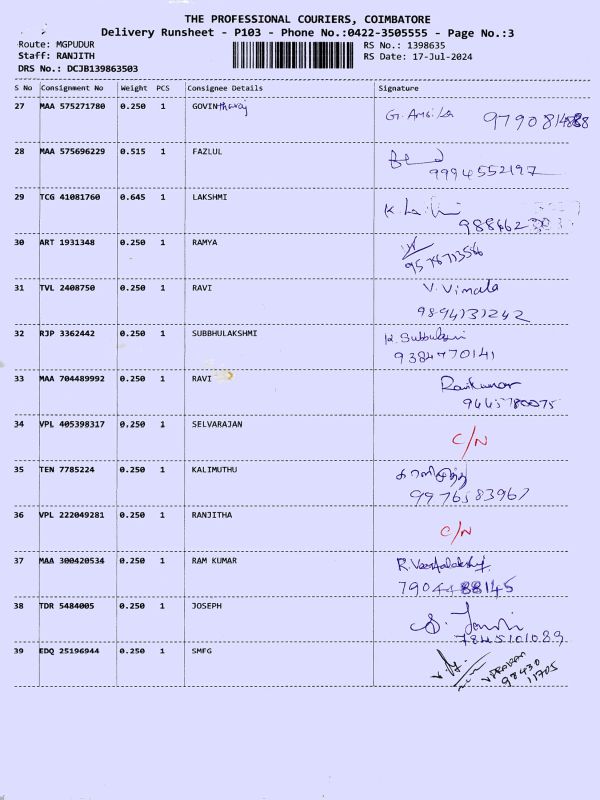 THE PROFESSIONAL COURIERS, COIMBATORE
Delivery Runsheet - P103 - Phone No.:0422-3505555 - Page No.:3
Route: MGPUDUR
RS No.: 1398635
Staff: RANJITH
RS Date: 17-Jul-2024
DRS No.: DCJB139863503
S No Consignment No Weight PCS Consignee Details Signature
27 MAA 575271780 0.250 1 GOVINtharaj
28 MAA 575696229 0.515 1 FAZLUL
9994552197
29 TCG 41081760 0.645 1 LAKSHMI
30 ART 1931348 0.250 1 RAMYA
31 TVL 2408750 0.250 1 RAVI V. Vimala
9894131242
32 RJP 3362442 0.250 1 SUBBHULAKSHMI
9384770141
33 MAA 704489992 0.250 1 RAVI Ravikumar
9445780075
34 VPL 405398317 0.250 1 SELVARAJAN C/N
35 TEN 7785224 0.250 1 KALIMUTHU காளிமுத்து
9976583967
36 VPL 222049281 0.250 1 RANJITHA C/N
37 MAA 300420534 0.250 1 RAM KUMAR
7904488145
38 TDR 5484005 0.250 1 JOSEPH
7845101089
39 EDQ 25196944 0.250 1 SMFG
98430
11705